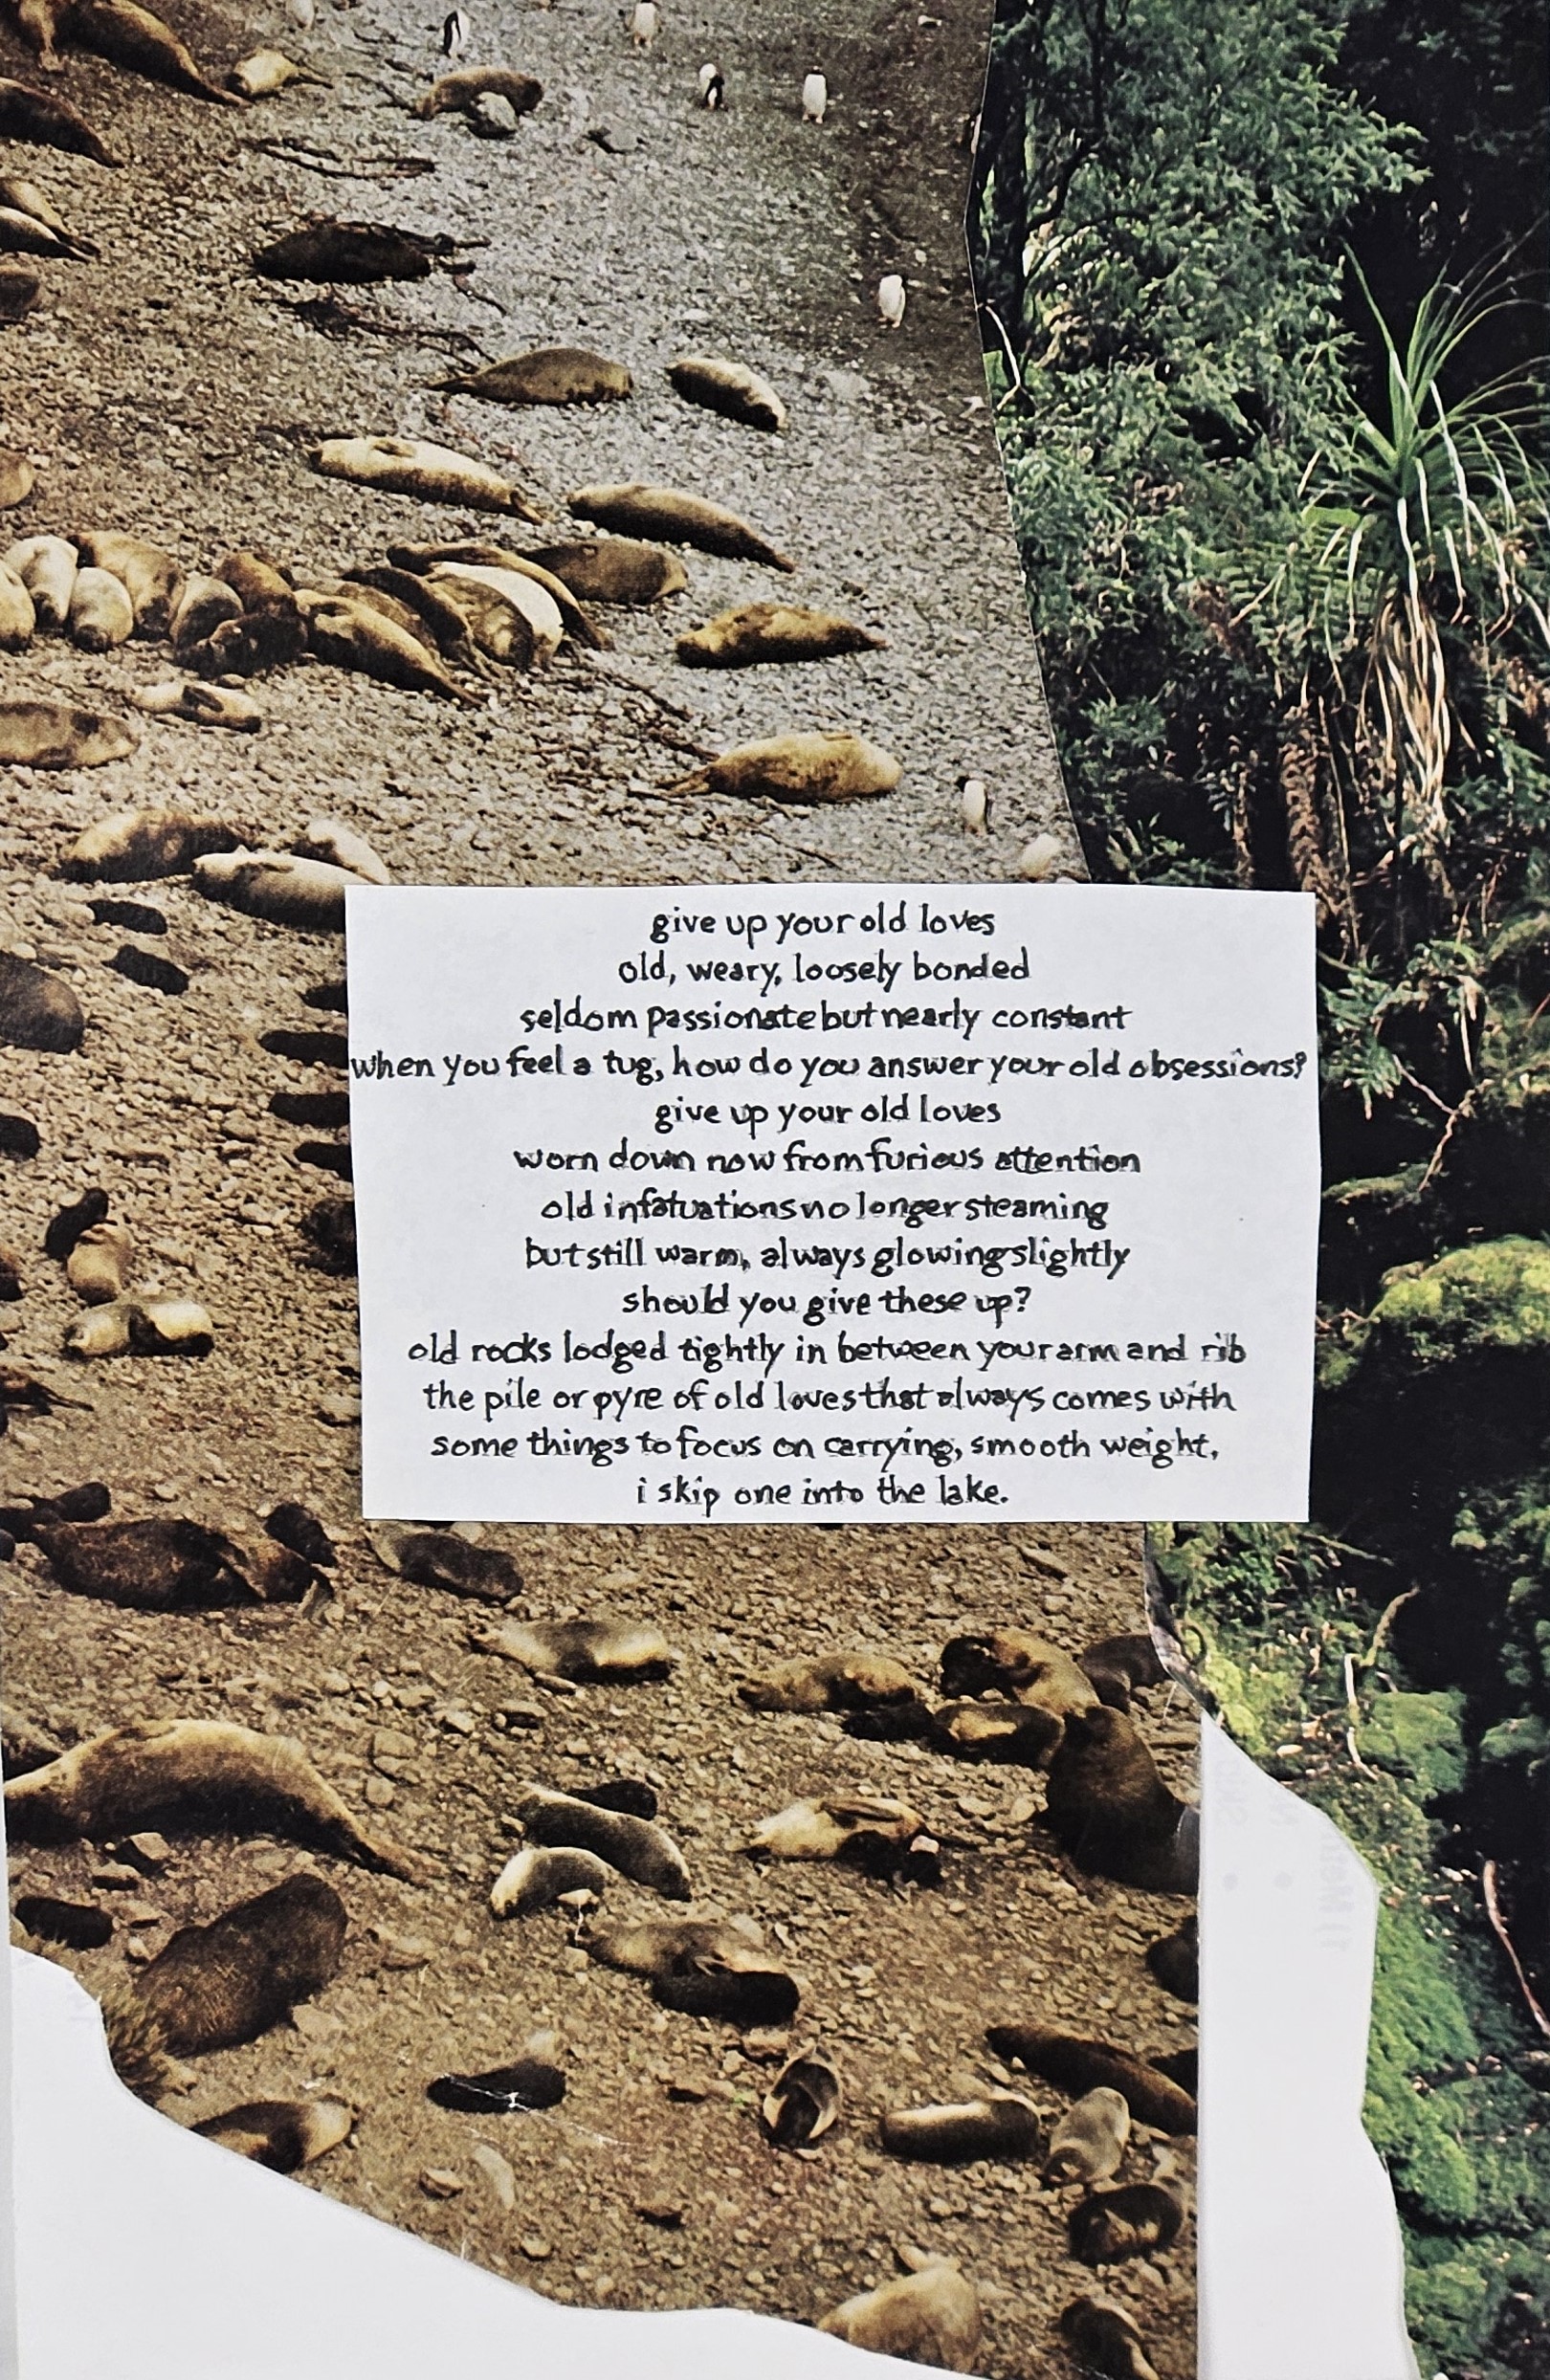 give up your old loves
old, weary, loosely bonded
seldom passionate but nearly constant
when you feel a tug, how do you answer your old obsessions?
give up your old loves
worn down now from furious attention
old infatuations no longer steaming
but still warm, always glowing slightly
should you give these up?
old rocks lodged tightly in between your arm and rib
the pile or pyre of old loves that always comes with
some things to focus on carrying, smooth weight,
i skip one into the lake.